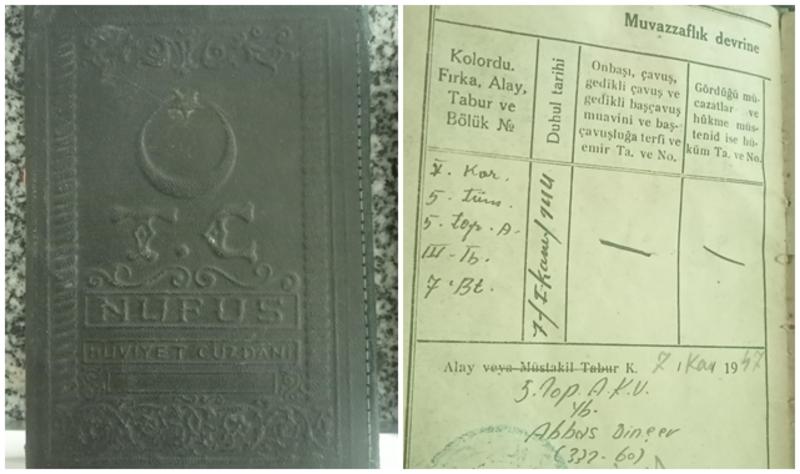 T.C
NÜFUS
HÜVİYET CÜZDANI
Muvazzaflık devrine
Kolordu.
Fırka, Alay,
Tabur ve
Bölük №
Duhul tarihi
Onbaşı, çavuş,
gedikli çavuş ve
gedikli başçavuş
muavini ve baş-
çavuşluğa terfi ve
emir Ta. ve No.
Gördüğü mü-
cazatlar ve
hükme müs-
tenid ise hü-
küm Ta. ve No.
Kor.
5. Tüm.
5. Top. A.
III. Tb.
7. Bt.
Alay veya Müstakil Tabur K. 7 1947
Top. A. K. V.
Yb.
Abbas Dinçer
(332-60)